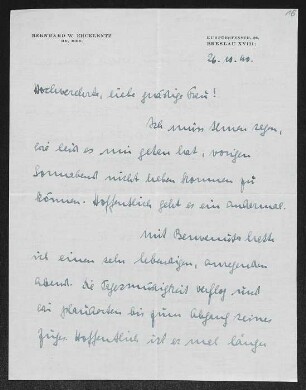 16
BERNHARD W. ZUCKERTZ
DR. MED.
BRESLAU XVIII,
26.10.40.
Hochverehrte, liebe gnädige Frau!
Ich muss Ihnen sagen,
wie leid es mir getan hat, vorigen
Sonnabend nicht haben kommen zu
können. Hoffentlich geht es ein andermal.
Mit Benvenuto hatte
ich einen sehr lebendigen, anregenden
Abend. Die Tagesmüdigkeit verflog und
wir plauderten bis zum Abgang seines
Zuges. Hoffentlich ist es mal länger